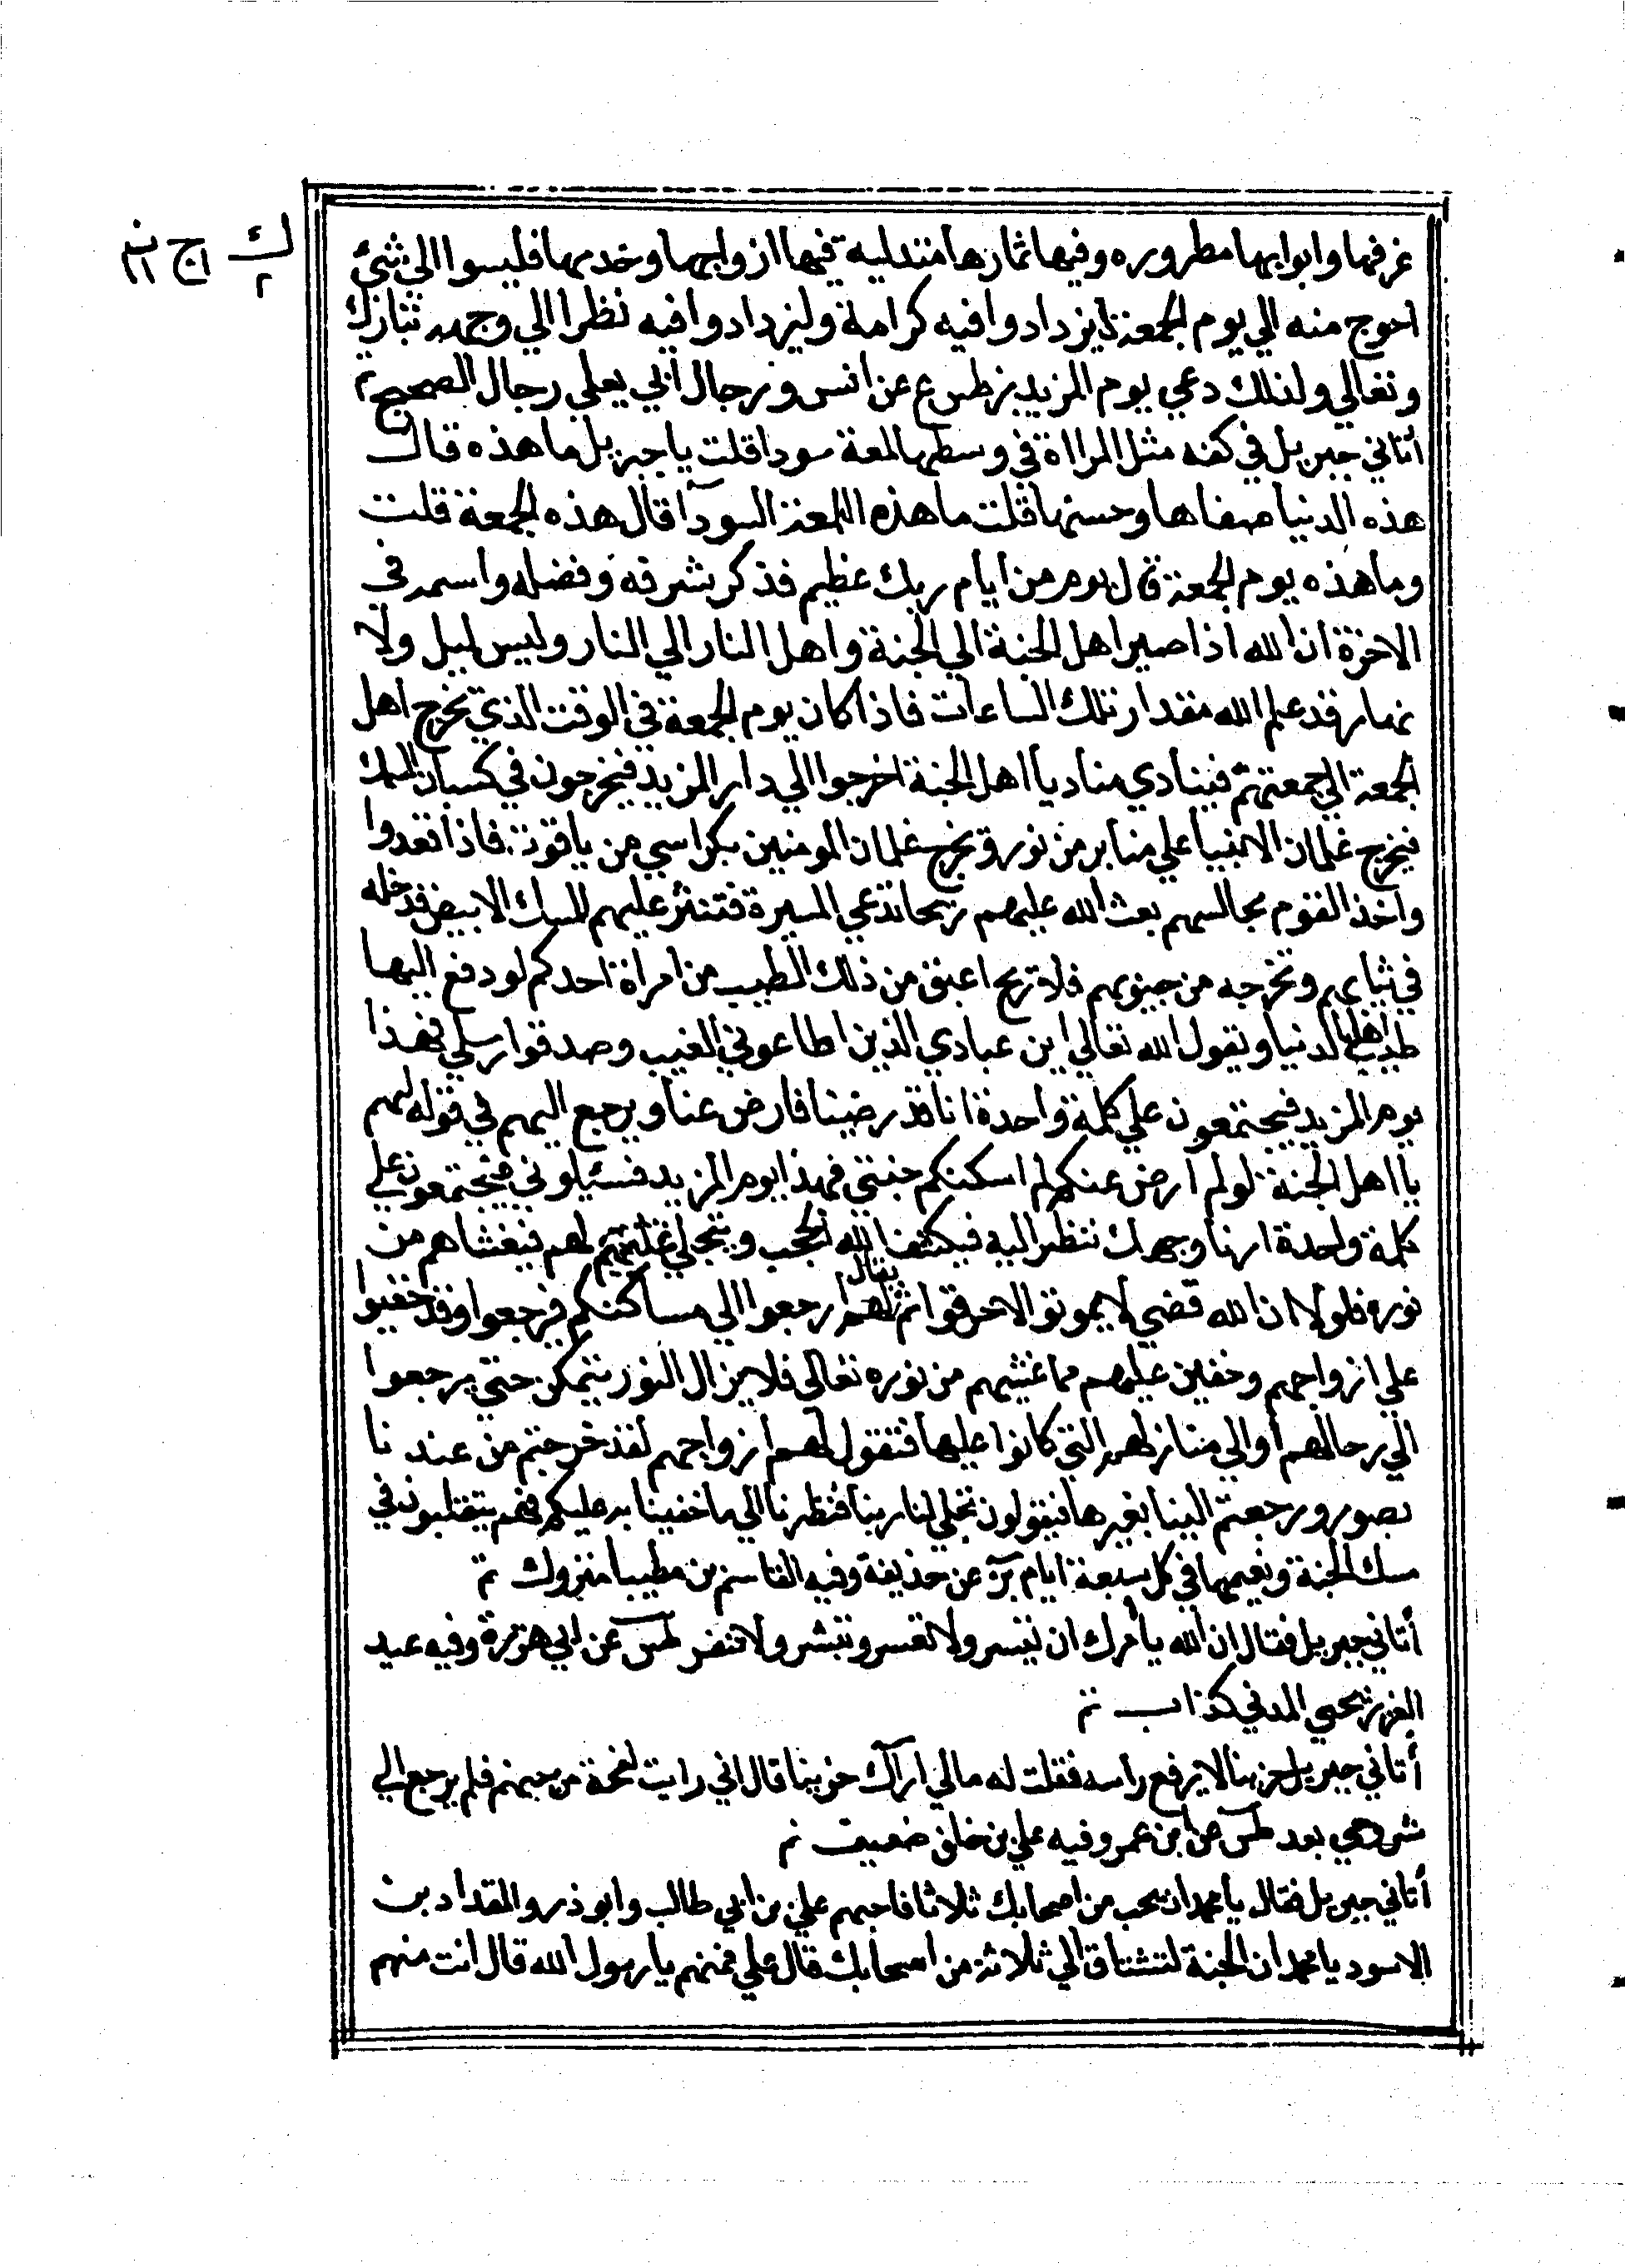 ك ٢ ج ١ ن ١١
غرفها وابوابها مطروره وفيها ثمارها متدليه فيها ازواجها وخدمها فليسوا الي شئ
احوج منه الي يوم الجمعة ليزدادوا فيه كرامة وليزدادوا فيه نظرا الي وجهه تبارك
وتعالي ولذلك دعي يوم المزيد بز طس ع عن انس ورجال ابي يعلي رجال الصحيح
أتاني جبريل في كفه مثل المراة في وسطها لمعة سودا قلت يا جبريل ما هذه قال
هذه الدنيا صفاها وحسنها قلت ما هذه اللمعة السودآ قال هذه الجمعة قلت
وما هذه يوم الجمعة قال يوم من ايام ربك عظيم فذكر شرفه وفضله واسمه في
الاخرة ان الله اذا صير اهل الجنة الي الجنة واهل النار الي النار وليس ليل ولا
نهار قد علم الله مقدار تلك الساعات فاذا كان يوم الجمعة في الوقت الذي تخرج اهل
الجمعة الي جمعتهم فينادي مناد يا اهل الجنة اخرجوا الي دار المزيد فيخرجون في كسبان المسك
فيخرج غلمان الانبيا علي منابر من نور ويخرج غلمان المومنين بكراسي من ياقوت فاذا قعدوا
واخذ القوم مجالسهم بعث الله عليهم ريحا تدعي المسيرة فتنثر عليهم المسك الابيض فدخله
في ثيابهم وتخرجه من جيوبهم فلا تريح اعبق من ذلك الطيب من امراة احدكم لو دفع اليها
طيب اهل الدنيا ويقول الله تعالي اين عبادي الذين اطاعوني الغيب وصدقوا رسلي فهذا
يوم المزيد فيجتمعون علي كلمة واحدة انا قد رضينا فارض عنا ويرجع اليهم في قوله لهم
يا اهل الجنة لو لم ارض عنكم لم اسكنكم جنتي فهذا يوم المزيد فسئلوني فيجتمعون علي
كلمة واحدة ارنا وجهك ننظر اليه فيكشف الله الحجب ويتجلي لهم فيغشاهم من
نوره فلولا ان الله قضي لا يموتو الاحرقوا ثم يقال لهم ارجعوا الي مساكنكم فيرجعوا وقد خفيوا
علي ازواجهم وخفين عليهم مما غشيهم من نوره تعالي فلا يزال النور يتمكن حتي يرجعوا
الي رحالهم أو الي منازلهم التي كانوا عليها فتقول لهم ازواجهم لقد خرجتم من عند نا
بصور ورجعتم الينا بغيرها فيقولون تجلي لنا ربنا فنظرنا الي ما خفينا به عليكم فهم يتقلبون في
مسك الجنة ونعيمها في كل سبعة ايام بز عن حذيفة وفيه القاسم بن مطيب متروك
أتاني جبريل فقال ان الله يأمرك ان تيسر ولا تعسر وتبشر ولا تنفر طس عن ابي هريرة وفيه عبد
العزيز بن يحيي المدني كذاب
أتاني جبريل حزينا لا يرفع راسه فقلت له مالي اراك حزينا قال اني رايت لفحة من جهنم فلم يرجع الي
روحي بعد طس عن ابن عمر وفيه علي بن خلف ضعيف
أتاني جبريل فقال يا محمد ان الله يحب من اصحابك ثلاثا فاحبهم علي بن ابي طالب وابو ذر والمقداد بن
الاسود يا محمد ان الجنة لتشتاق الي ثلاثة من اصحابك قال علي فمنهم يا رسول الله قال انت منهم